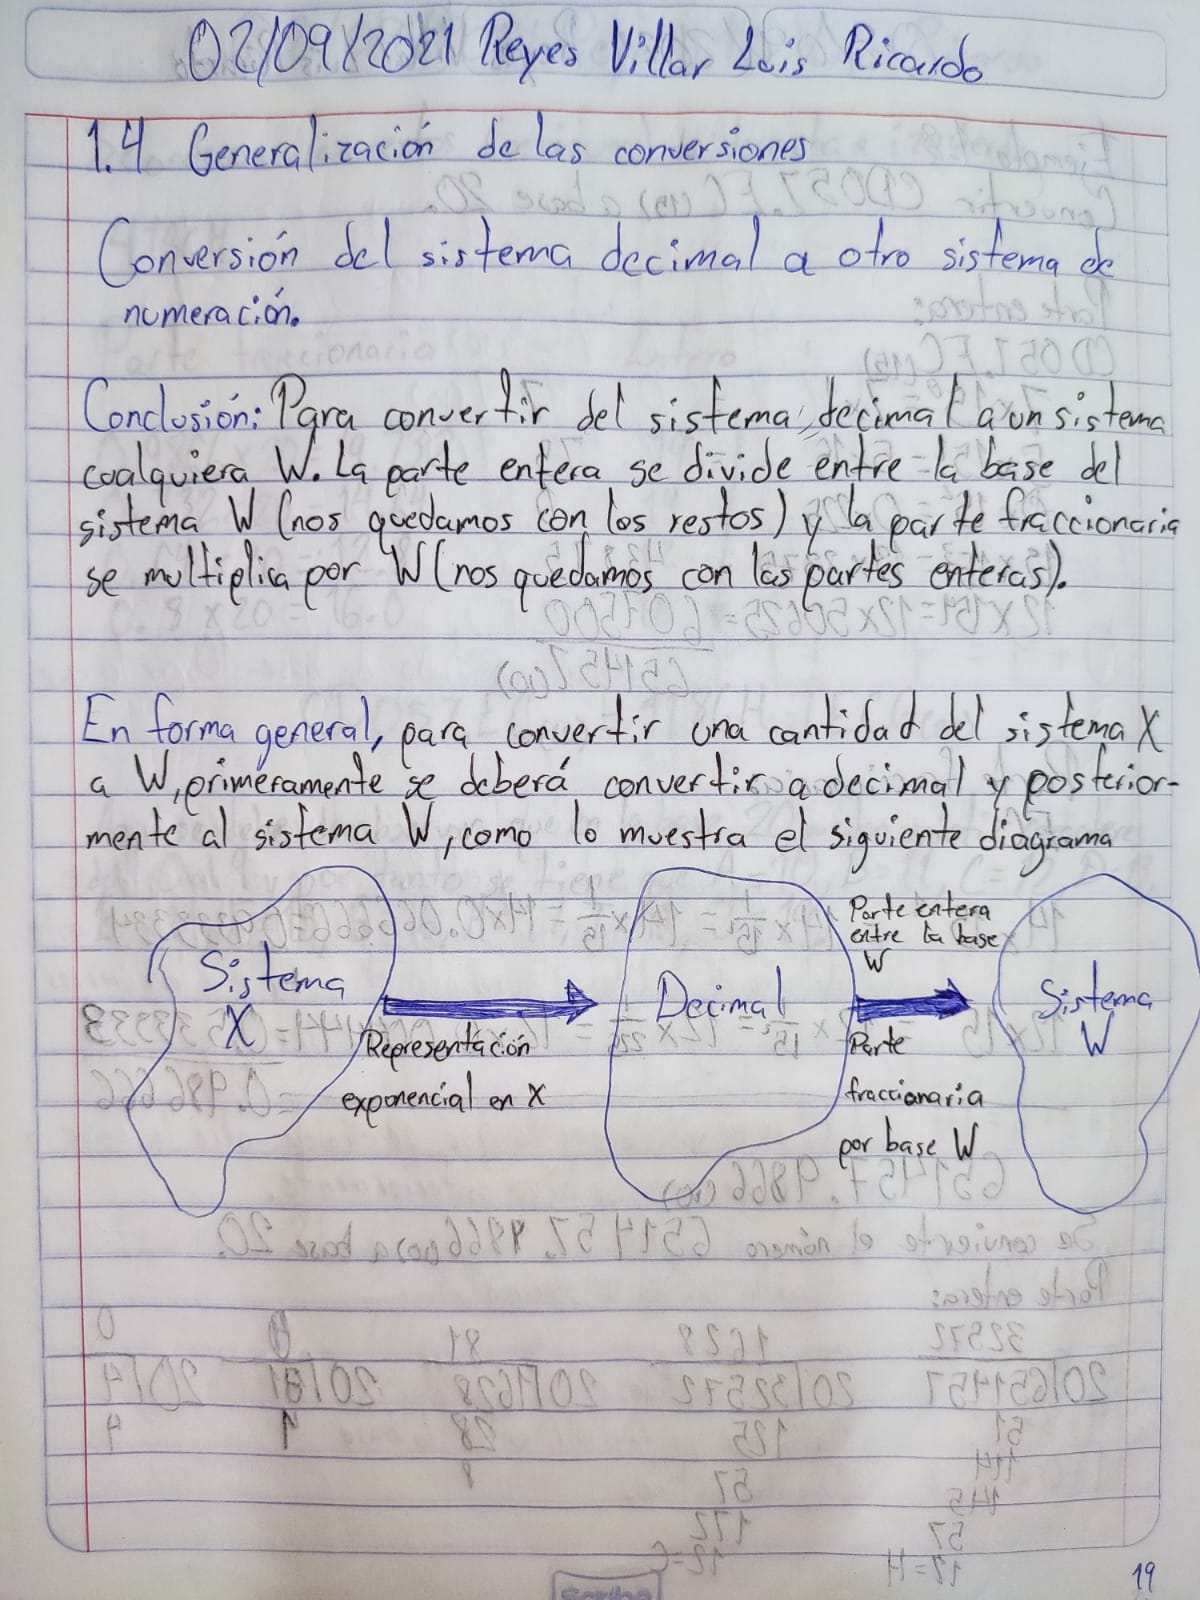 02/09/2021 Reyes Villar Luis Ricardo
1.4 Generalización de las conversiones
Conversión del sistema decimal a otro sistema de
numeración.
Conclusión: Para convertir del sistema decimal a un sistema
cualquiera W. La parte entera se divide entre la base del
sistema W (nos quedamos con los restos) y la parte fraccionaria
se multiplica por W (nos quedamos con las partes enteras).
En forma general, para convertir una cantidad del sistema X
a W, primeramente se deberá convertir a decimal y posterior-
mente al sistema W, como lo muestra el siguiente diagrama
Sistema
X
Representación
exponencial en X
Decimal
Parte entera
entre la base
W
Parte
fraccionaria
por base W
Sistema
W
19